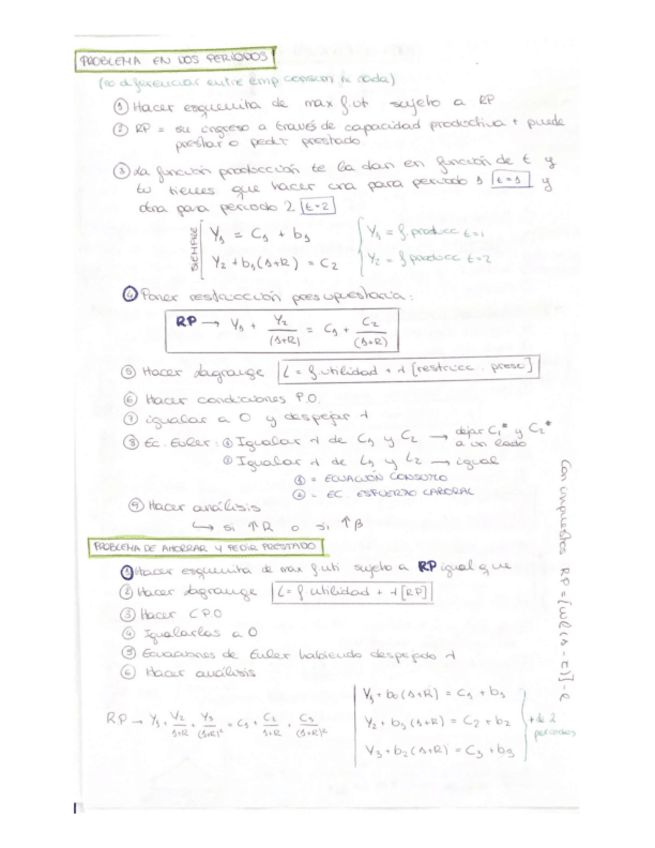 PROBLEMA EN DOS PERIODOS
(no diferenciar entre emp consum ni nada)
① Hacer esquemita de max f ut sujeto a RP
② RP = su ingreso a través de capacidad productiva + puede
prestar o pedir prestado
③ La función producción te la dan en función de t y
tu tienes que hacer una para periodo 1 t=1 y
otra para periodo 2 t=2
SIEMPRE
Y₁ = C₁ + b₁
Y₂ + b₁(1+R) = C₂
Y₁ = f. producc t=1
Y₂ = f producc t=2
④ Poner restricción presupuestaria:
RP → Y₁ + Y₂/(1+R) = C₁ + C₂/(1+R)
⑤ Hacer Lagrange L = f utilidad + λ [restricc. presu]
⑥ Hacer condiciones P.O.
⑦ igualar a 0 y despejar λ
⑧ Ec. Euler: ① Igualar λ de C₁ y C₂ → dejar C₁* y C₂* a un lado
② Igualar λ de L₁ y L₂ → igual
① = ECUACIÓN CONSUMO
② = EC. ESFUERZO LABORAL
⑨ Hacer análisis
↳ si ↑R o si ↑β
PROBLEMA DE AHORRAR Y PEDIR PRESTADO
① Hacer esquemita de max f uti sujeto a RP igual que
② Hacer Lagrange L = f utilidad + λ [RP]
③ Hacer C.P.O
④ Igualarlas a 0
⑤ Ecuaciones de Euler habiendo despejado λ
⑥ Hacer análisis
RP → Y₁ + Y₂/1+R + Y₃/(1+R)² = C₁ + C₂/1+R + C₃/(1+R)²
Y₁ + b₀(1+R) = C₁ + b₁
Y₂ + b₁(1+R) = C₂ + b₂
Y₃ + b₂(1+R) = C₃ + b₃
+ de 2
periodos
Con impuestos RP = [wl(1-t)]-c